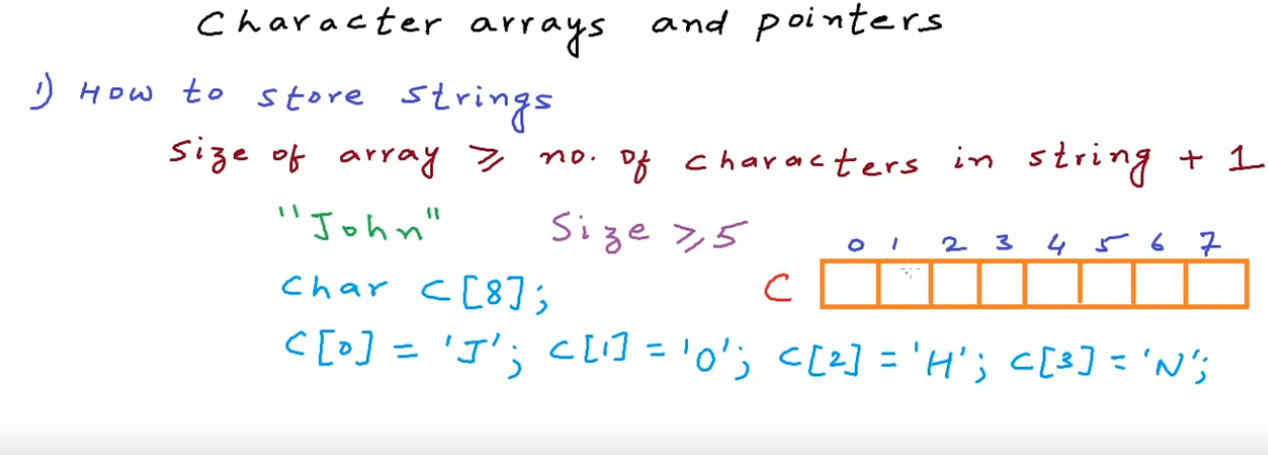 Character arrays and pointers
1) How to store strings
Size of array ≥ no. of characters in string + 1
"John" Size ≥ 5
0 1 2 3 4 5 6 7
char C[8]; C
C[0] = 'J'; C[1] = 'O'; C[2] = 'H'; C[3] = 'N';